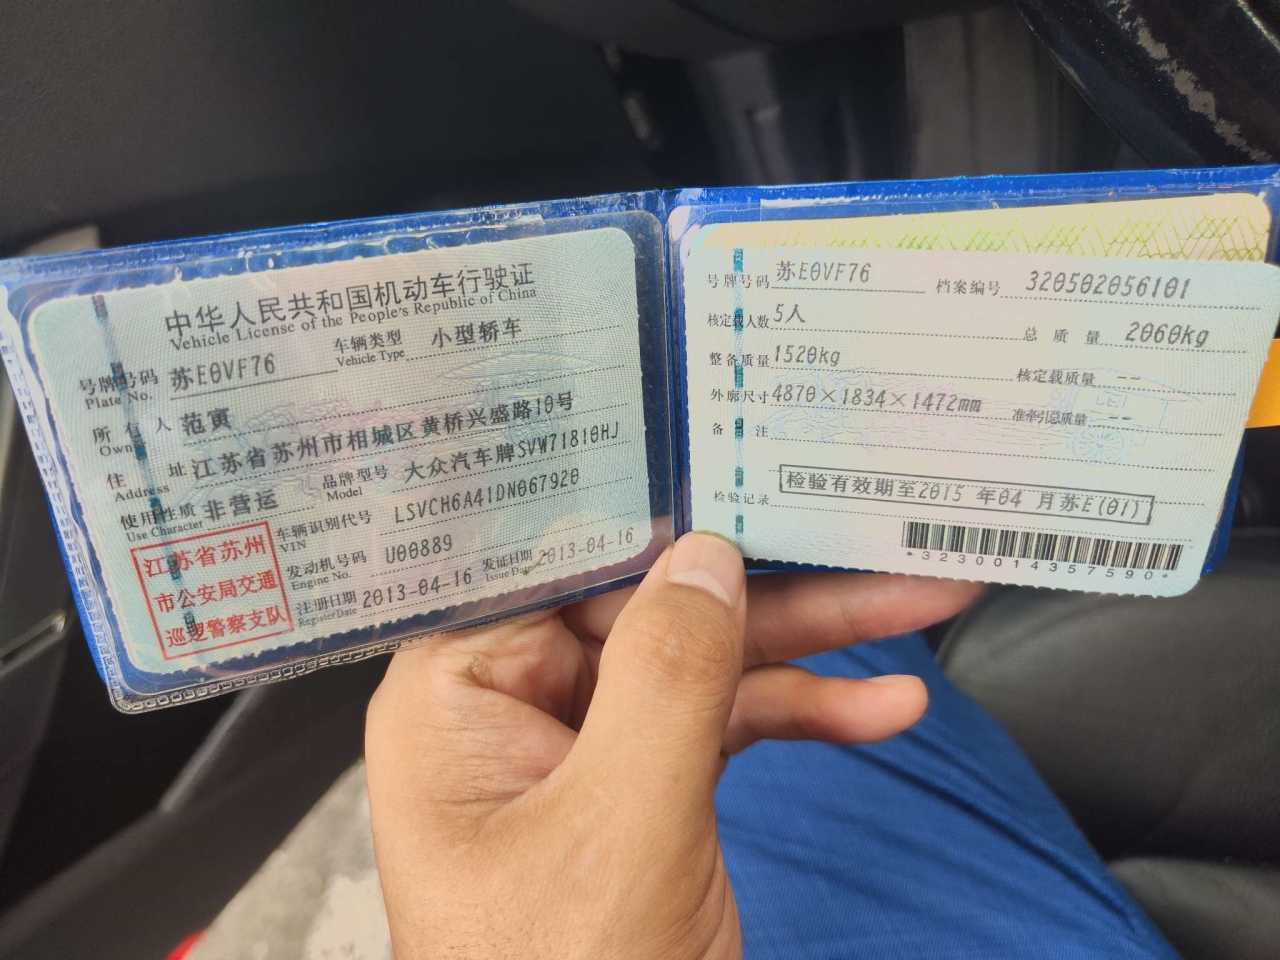 中华人民共和国机动车行驶证
Vehicle License of the People's Republic of China
号牌号码 苏E0VF76 车辆类型 小型轿车
Plate No. Vehicle Type
所有人 范寅
Owner
住址 江苏省苏州市相城区黄桥兴盛路10号
Address
使用性质 非营运 品牌型号 大众汽车牌SVW71810HJ
Use Character Model
江苏省苏州
市公安局交通
巡逻警察支队
车辆识别代号 LSVCH6A41DN067920
VIN
发动机号码 U00889
Engine No.
注册日期 2013-04-16 发证日期 2013-04-16
Register Date Issue Date
号牌号码 苏E0VF76 档案编号 320502056101
核定载人数 5人 总质量 2060kg
整备质量 1520kg 核定载质量 --
外廓尺寸 4870×1834×1472mm 准牵引总质量 --
备注
检验记录 检验有效期至2015 年04 月苏E(01)
*3230014357590*